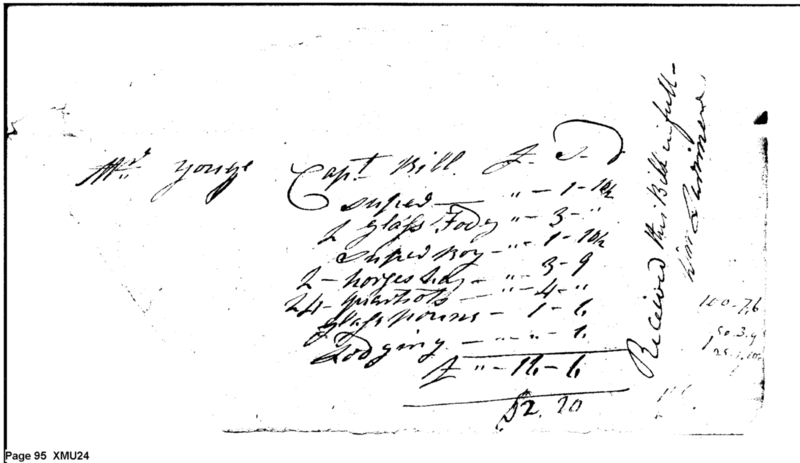 Mr. Yonge Capt. Bill. £ S D
super — " - 1 - 10½
2 glass Tody " - 3 - "
Super Boy - " - 1 - 10½
2 - horses hay - " - 3 - 9
24 - quarts ots - " - 4 - "
glass - 1 - 6
Lodging - " - " - 6
£ " - 16 - 6
$2. 70
Received this Bill in full -
100-7,6
50.3.9
Page 95 XMU24